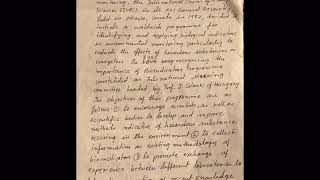 monitoring, the International Union of
Sciences (IUBS) in its XXI General Assembly
held in Ottawa, Canada in 1982, decided to
initiate a worldwide programme for
identifying and applying biological indicators
in environmental monitoring particularly to
evaluate the effects of hazardous substances on
ecosystem. So IUBS recognising the
importance of Bioindicators Programme
constituted an International steering
committee headed by Prof. J. Salanki of Hungary
The objectives of this programme are as
follows ① to encourage scientists as well as
scientific bodies to develop and improve
methods indicative of hazardous substances
occuring in the environment ② to collect
information on existing methodology of
biomonitors ③ to promote exchange of
experience between different laboratories to
of present knowledge